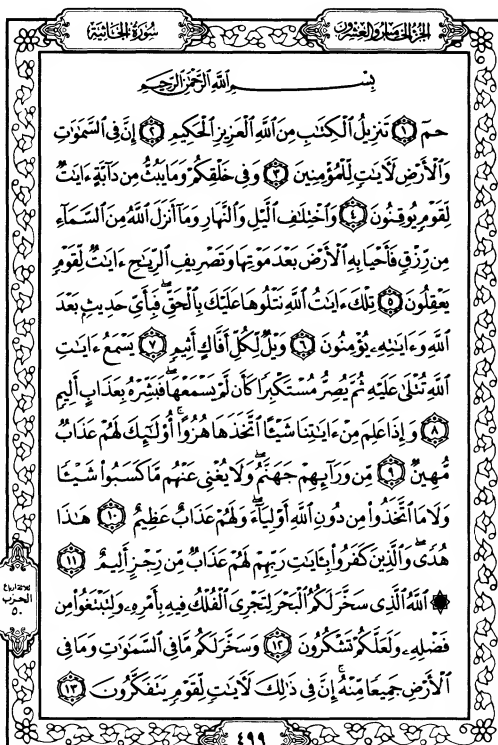 سُورَةُ الجَاثِيَةِ
الجُزْءُ الخَامِسُ وَالعِشْرُونَ
بِسْمِ ٱللَّهِ ٱلرَّحْمَٰنِ ٱلرَّحِيمِ
حمٓ ١ تَنزِيلُ ٱلْكِتَٰبِ مِنَ ٱللَّهِ ٱلْعَزِيزِ ٱلْحَكِيمِ ٢ إِنَّ فِى ٱلسَّمَٰوَٰتِ
وَٱلْأَرْضِ لَءَايَٰتٍ لِّلْمُؤْمِنِينَ ٣ وَفِى خَلْقِكُمْ وَمَا يَبُثُّ مِن دَآبَّةٍ ءَايَٰتٌ
لِّقَوْمٍ يُوقِنُونَ ٤ وَٱخْتِلَٰفِ ٱلَّيْلِ وَٱلنَّهَارِ وَمَآ أَنزَلَ ٱللَّهُ مِنَ ٱلسَّمَآءِ
مِن رِّزْقٍ فَأَحْيَا بِهِ ٱلْأَرْضَ بَعْدَ مَوْتِهَا وَتَصْرِيفِ ٱلرِّيَٰحِ ءَايَٰتٌ لِّقَوْمٍ
يَعْقِلُونَ ٥ تِلْكَ ءَايَٰتُ ٱللَّهِ نَتْلُوهَا عَلَيْكَ بِٱلْحَقِّ ۖ فَبِأَىِّ حَدِيثٍۭ بَعْدَ
ٱللَّهِ وَءَايَٰتِهِۦ يُؤْمِنُونَ ٦ وَيْلٌ لِّكُلِّ أَفَّاكٍ أَثِيمٍ ٧ يَسْمَعُ ءَايَٰتِ
ٱللَّهِ تُتْلَىٰ عَلَيْهِ ثُمَّ يُصِرُّ مُسْتَكْبِرًا كَأَن لَّمْ يَسْمَعْهَا ۖ فَبَشِّرْهُ بِعَذَابٍ أَلِيمٍ
٨ وَإِذَا عَلِمَ مِنْ ءَايَٰتِنَا شَيْـًٔا ٱتَّخَذَهَا هُزُوًا ۚ أُو۟لَٰٓئِكَ لَهُمْ عَذَابٌ
مُّهِينٌ ٩ مِّن وَرَآئِهِمْ جَهَنَّمُ ۖ وَلَا يُغْنِى عَنْهُم مَّا كَسَبُوا۟ شَيْـًٔا
وَلَا مَا ٱتَّخَذُوا۟ مِن دُونِ ٱللَّهِ أَوْلِيَآءَ ۖ وَلَهُمْ عَذَابٌ عَظِيمٌ ١٠ هَٰذَا
هُدًى ۖ وَٱلَّذِينَ كَفَرُوا۟ بِـَٔايَٰتِ رَبِّهِمْ لَهُمْ عَذَابٌ مِّن رِّجْزٍ أَلِيمٌ ١١
۞ ٱللَّهُ ٱلَّذِى سَخَّرَ لَكُمُ ٱلْبَحْرَ لِتَجْرِىَ ٱلْفُلْكُ فِيهِ بِأَمْرِهِۦ وَلِتَبْتَغُوا۟ مِن
فَضْلِهِۦ وَلَعَلَّكُمْ تَشْكُرُونَ ١٢ وَسَخَّرَ لَكُم مَّا فِى ٱلسَّمَٰوَٰتِ وَمَا فِى
ٱلْأَرْضِ جَمِيعًا مِّنْهُ ۚ إِنَّ فِى ذَٰلِكَ لَءَايَٰتٍ لِّقَوْمٍ يَتَفَكَّرُونَ ١٣
الحزب
٥٠
٤٩٩